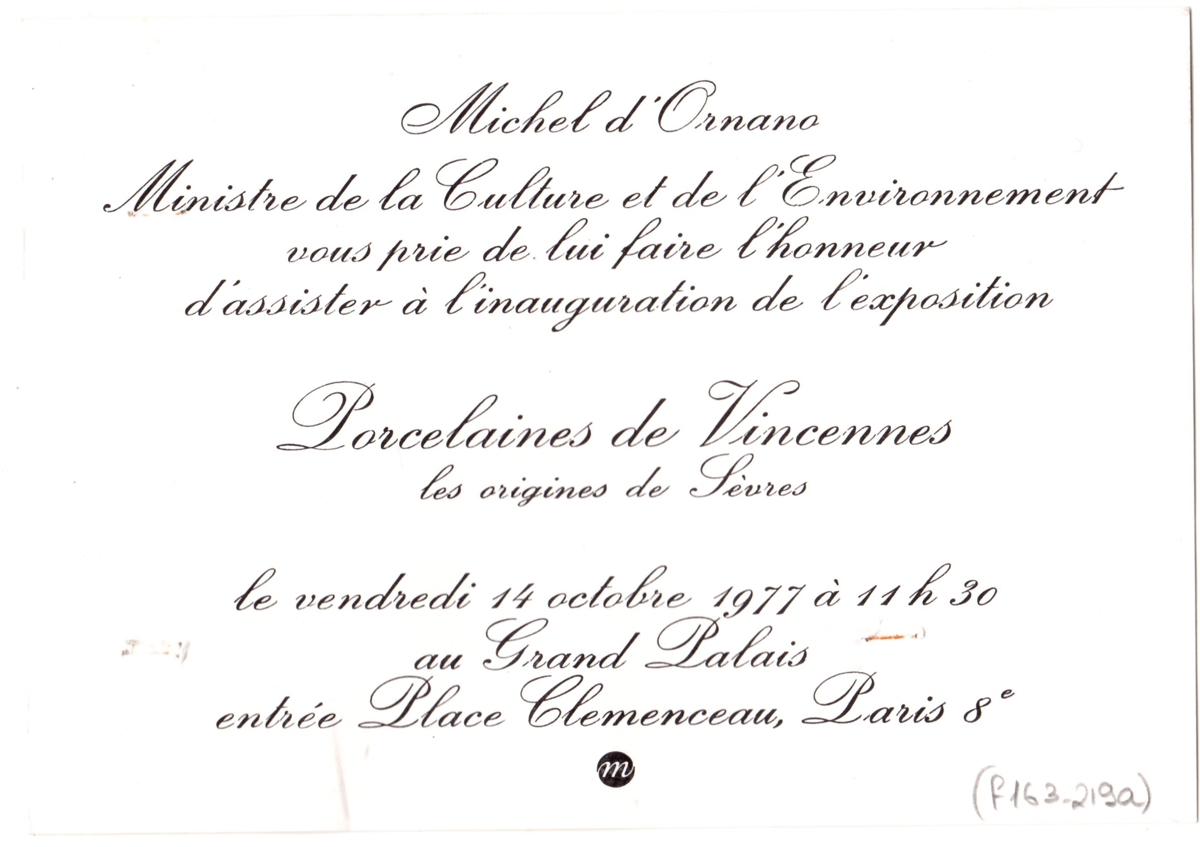 Michel d'Ornano
Ministre de la Culture et de l'Environnement
vous prie de lui faire l'honneur
d'assister à l'inauguration de l'exposition
Porcelaines de Vincennes
les origines de Sèvres
le vendredi 14 octobre 1977 à 11 h 30
au Grand Palais
entrée Place Clemenceau, Paris 8e
m
(f163-219a)